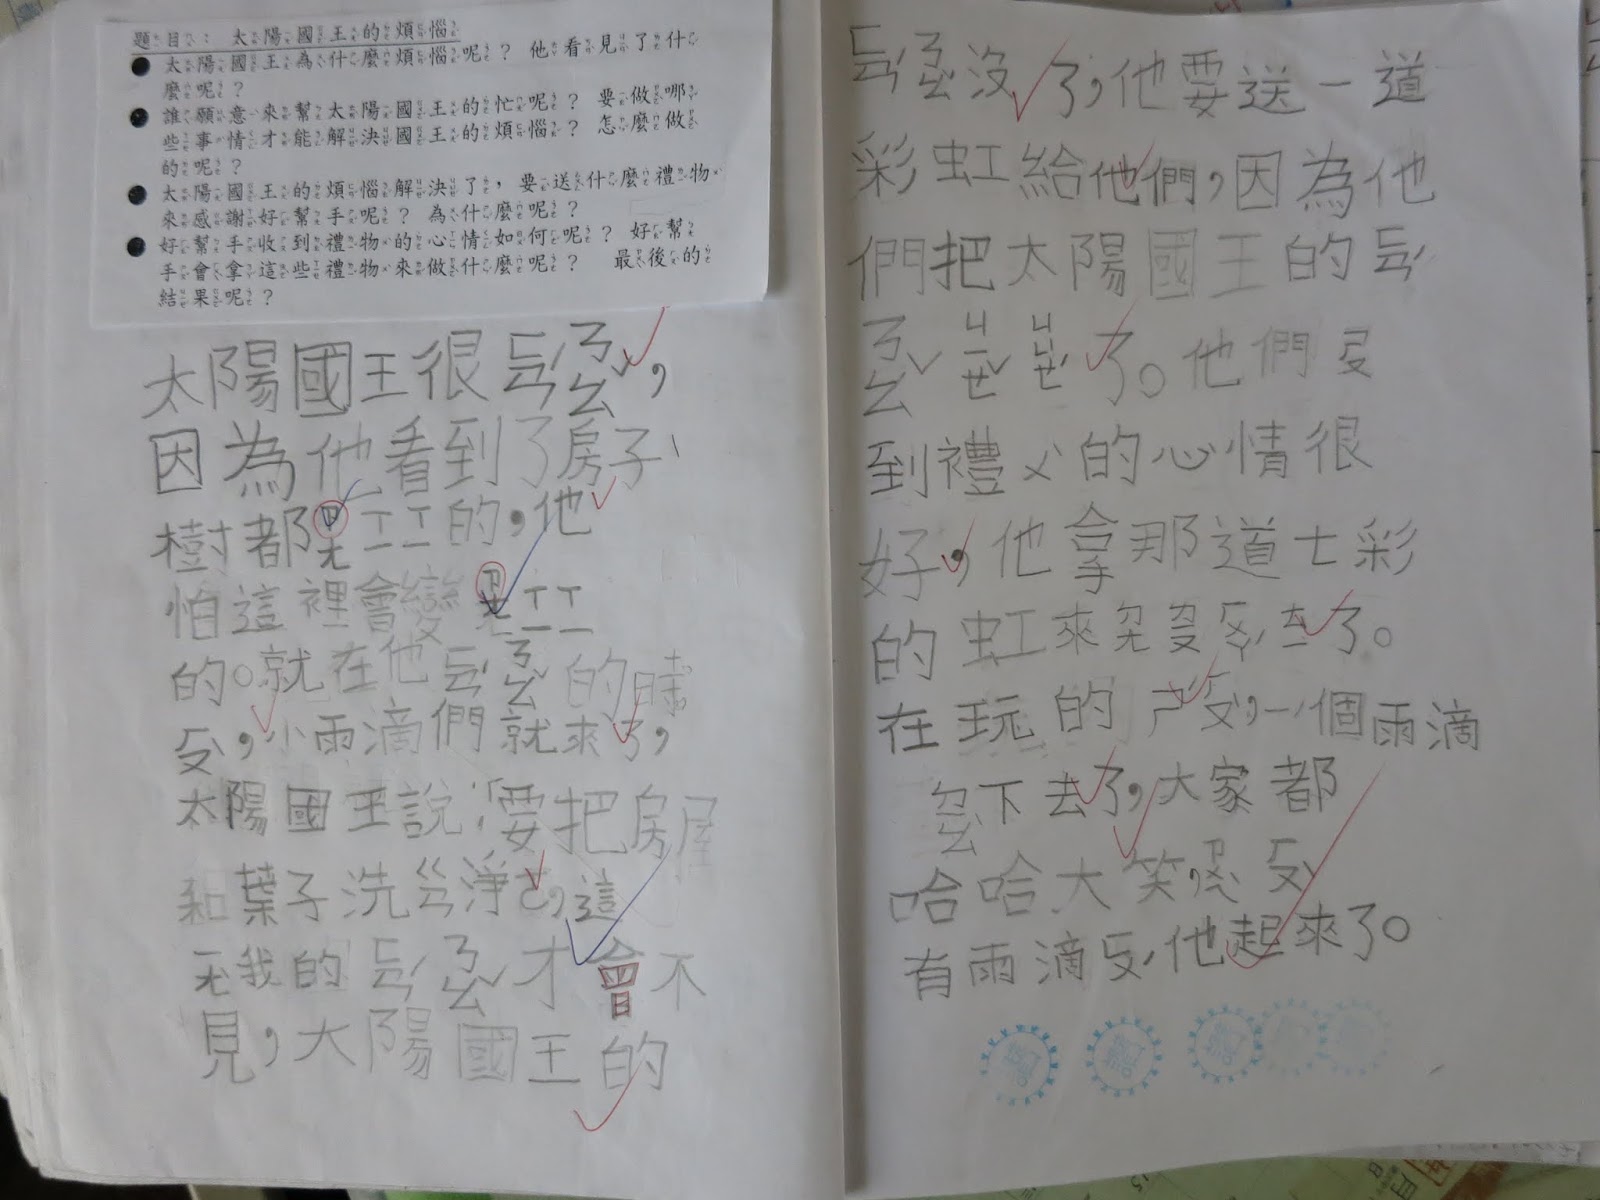 題目：太陽國王的煩惱
太陽國王為什麼煩惱呢？他看見了什
麼呢？
誰願意來幫太陽國王的忙呢？要做哪
些事情才能解決國王的煩惱？怎麼做
的呢？
太陽國王的煩惱解決了，要送什麼禮物
來感謝好幫手呢？為什麼呢？
好幫手收到禮物的心情如何呢？好幫
手會拿這些禮物來做什麼呢？最後的
結果呢？
太陽國王很ㄈㄢˊㄋㄠˇ，
因為他看到了房子、
樹都ㄗㄤ ㄒㄧ ㄒㄧ的，他
怕這裡會變ㄗㄤ ㄒㄧ ㄒㄧ
的。就在他ㄈㄢˊㄋㄠˇ的時
ㄏㄡˋ，小雨滴們就來了，
太陽國王說：「要把房屋
和葉子洗ㄍㄢ淨」，這
ㄧㄤˋ我的ㄈㄢˊㄋㄠˇ才會不
見，太陽國王的
ㄈㄢˊㄋㄠˇ沒了，他要送一道
彩虹給他們，因為他
們把太陽國王的ㄈㄢˊ
ㄋㄠˇㄐㄧㄝˇㄐㄩㄝˊ了。他們ㄕㄡ
到禮ㄨˋ的心情很
好，他拿那道七彩
的虹來ㄉㄤ ㄏㄨㄚˊㄊㄧ了。
在玩的ㄕˊㄏㄡˋ，一個雨滴
ㄉㄠˇ下去了，大家都
哈哈大笑，ㄗㄨㄟˋㄏㄡˋ
有雨滴ㄈㄨˊ他起來了。